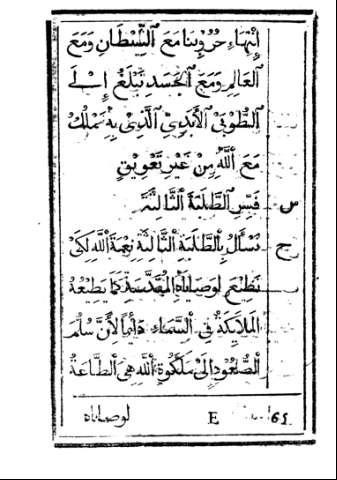 إِنْتِهَاءِ حُرُوبِنَا مَعَ ٱلشَّيْطَانِ وَمَعَ
ٱلعَالَمِ وَمَعَ ٱلْجَسَدِ نَبْلَغُ إِلَى
ٱلطُّوبَى ٱلْأَبَدِيِّ ٱلَّذِي بِهِ نَمْلُكُ
مَعَ ٱللَّهِ مِنْ غَيْرِ تَعْوِيْقٍ
س فَسِّرِ ٱلطَّلِبَةَ ٱلثَّالِثَةَ
ج نَسْأَلُ بِٱلطَّلِبَةِ ٱلثَّالِثَةِ نِعْمَةَ ٱللَّهِ لِكَيْ
نَطِيْعَ لِوَصَايَاهُ ٱلْمُقَدَّسَةِ كَمَا يَطِيْعُهُ
ٱلمَلَايِكَةُ فِي ٱلسَّمَاءِ دَايْمًا لِأَنَّ سُلَّمَ
ٱلصُّعُودِ إِلَى مَلَكُوةِ ٱللَّهِ هِيَ ٱلطَّاعَةُ
65 E لوصاياه